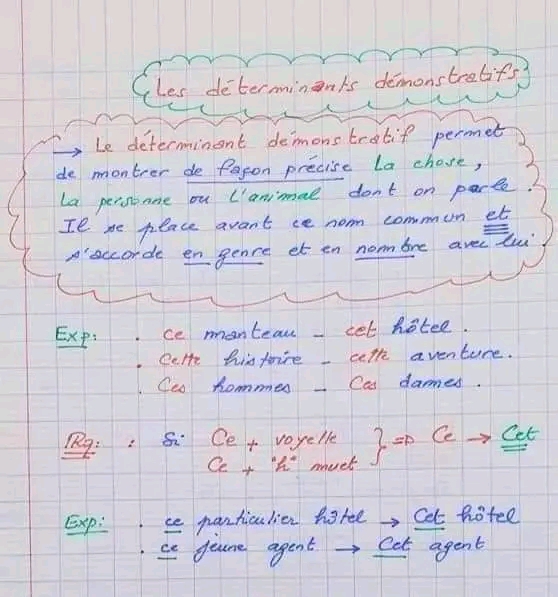 Les déterminants démonstratifs
→ Le déterminant démonstratif permet
de montrer de façon précise la chose,
la personne ou l'animal dont on parle.
Il se place avant ce nom commun et
s'accorde en genre et en nombre avec lui.
Exp: . ce manteau - cet hôtel.
. Cette histoire - cette aventure.
. Ces hommes - Ces dames.
Rq: : Si Ce + voyelle } => Ce → Cet
Ce + "h" muet
Exp: . ce particulier hôtel → Cet hôtel
. ce jeune agent → Cet agent